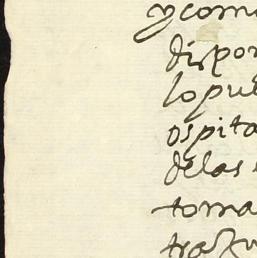 y com
dispon
lo pu
ospita
delas
toma